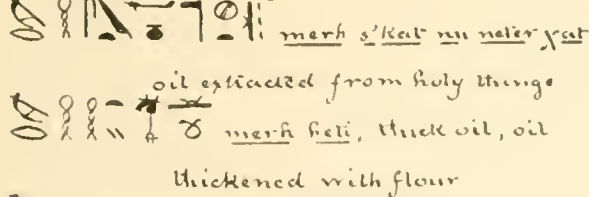 merh s'kat nu neter χat
oil extracted from holy things
merh heti, thick oil, oil
thickened with flour